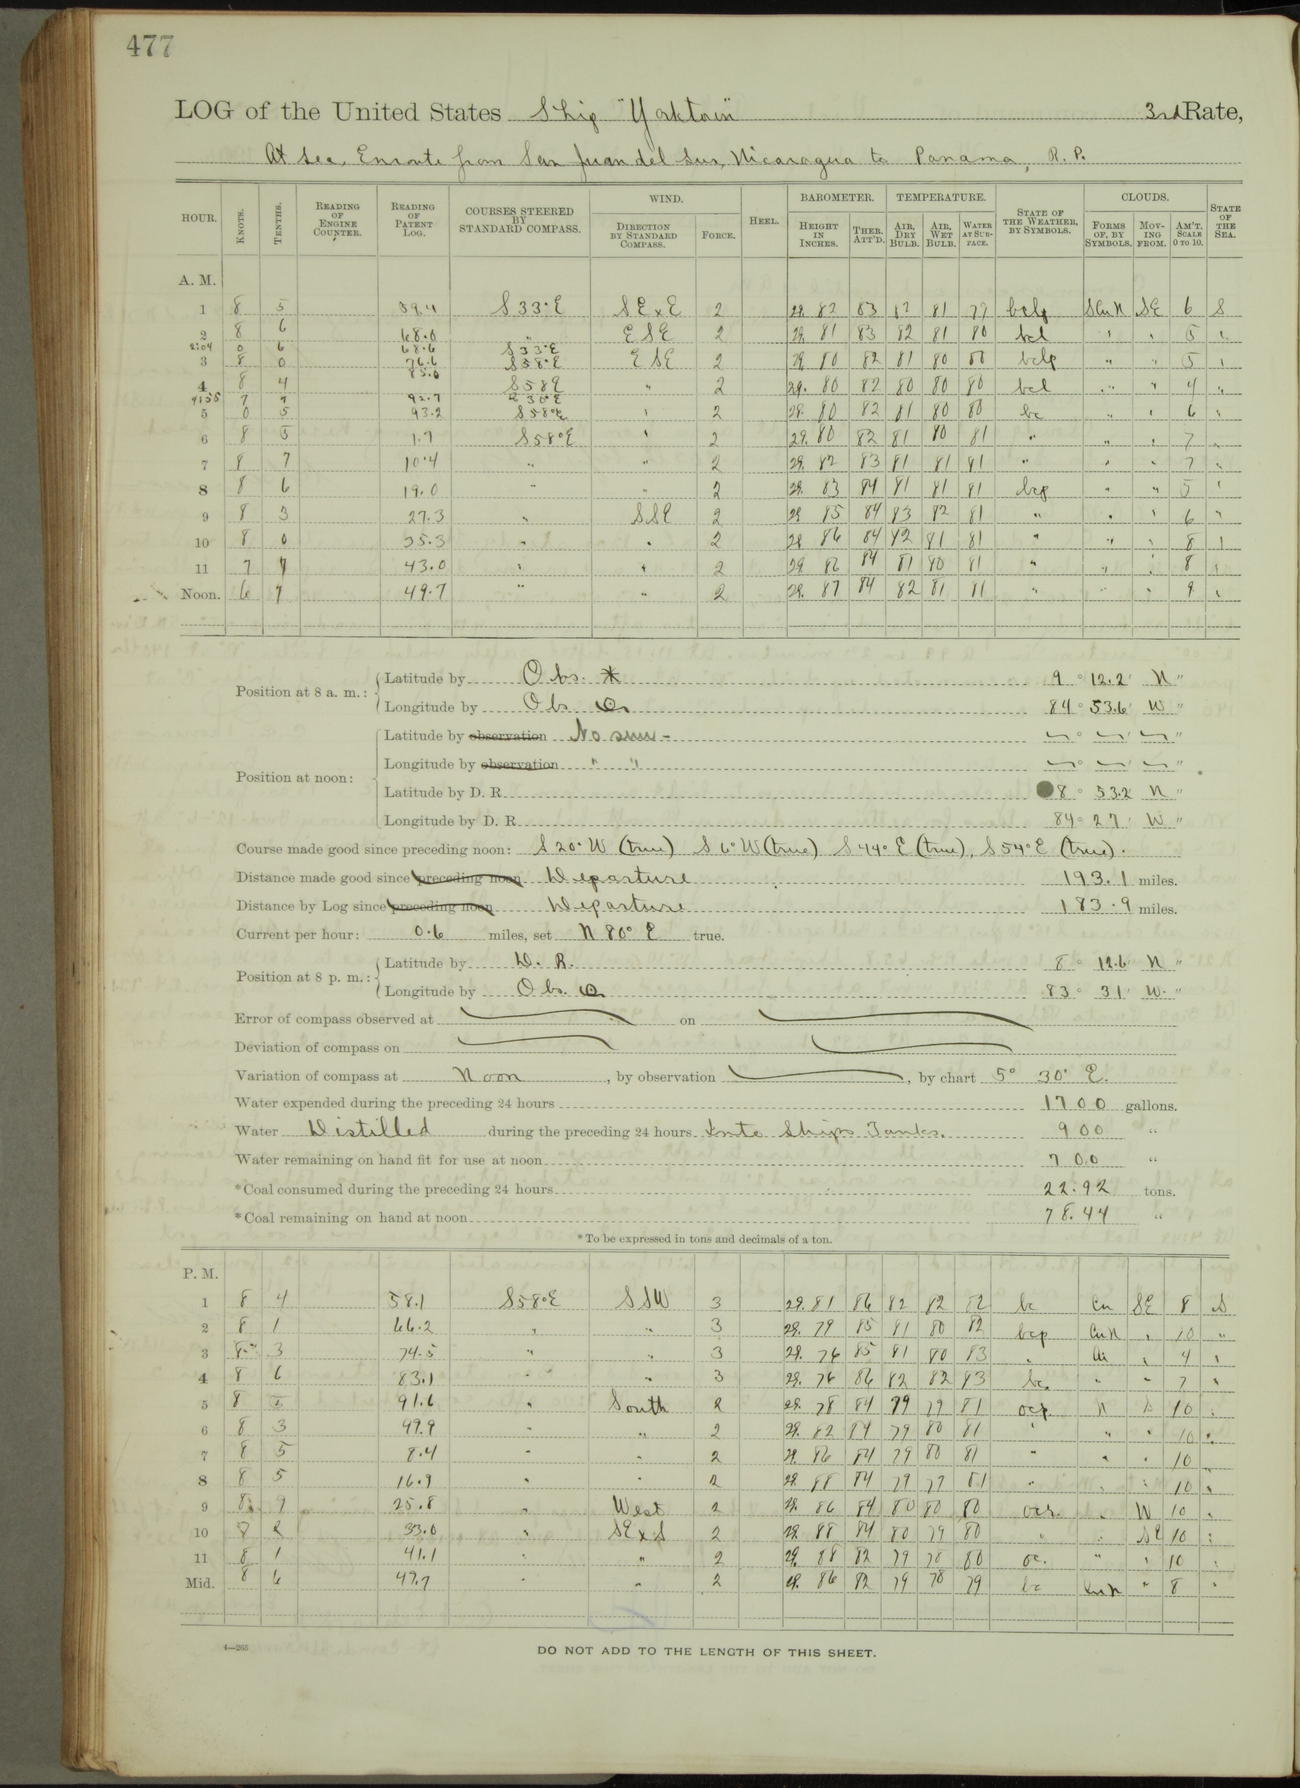 477
LOG of the United States Ship "Yorktown" 3rd Rate,
At sea, Enroute from San Juan del Sur, Nicaragua to Panama, R. P.
HOUR. KNOTS. TENTHS. READING OF ENGINE COUNTER. READING OF PATENT LOG. COURSES STEERED BY STANDARD COMPASS. WIND. DIRECTION BY STANDARD COMPASS. FORCE. HEEL. BAROMETER. HEIGHT IN INCHES. THER. ATT'D. TEMPERATURE. AIR, DRY BULB. AIR, WET BULB. WATER AT SURFACE. STATE OF THE WEATHER, BY SYMBOLS. CLOUDS. FORMS OF, BY SYMBOLS. MOVING FROM. AM'T. SCALE 0 TO 10. STATE OF THE SEA.
A. M.
1 8 5 59.4 S 33° E SExE 2 29. 82 83 81 77 bclp SCuN SE 6 S
2 8 6 68.0 " ESE 2 29. 81 83 82 81 80 bcl " " 5 "
2:04 0 6 68.6 S 33° E
3 8 0 76.6 S 58° E ESE 2 29. 80 82 81 80 80 bclp " " 5 "
4 8 4 85.0 S 58 E " 2 29. 80 82 80 80 80 bcl " " 4 "
4:55 7 7 92.7
5 0 5 93.2 S 58° E " 2 29. 80 82 81 80 80 bc " " 6 "
6 8 5 1.7 S 58° E " 2 29. 80 82 81 80 81 " " " 7 "
7 8 7 10.4 " " 2 29. 82 83 81 81 81 " " " 7 "
8 8 6 19.0 " " 2 29. 83 84 81 81 81 bcp " " 5 "
9 8 3 27.3 " SSE 2 29. 85 84 83 82 81 " " " 6 "
10 8 0 35.3 " " 2 29. 86 84 82 81 81 " " " 8 "
11 7 7 43.0 " " 2 29. 86 84 81 80 81 " " " 8 "
Noon. 6 7 49.7 " " 2 29. 87 84 82 81 81 " " " 9 "
Position at 8 a. m.: Latitude by Obs. * 9° 12.2' N "
Longitude by Obs. 84° 53.6' W "
Position at noon: Latitude by observation No sun -
Longitude by observation " "
Latitude by D. R. 8° 53.2 N "
Longitude by D. R. 84° 27' W "
Course made good since preceding noon: S 20° W (true) S 6° W (true) S 44° E (true), S 54° E (true).
Distance made good since preceding noon Departure 193.1 miles.
Distance by Log since preceding noon Departure 183.9 miles.
Current per hour: 0.6 miles, set N 80° E true.
Position at 8 p. m.: Latitude by D. R. 8° 12.6 N "
Longitude by Obs. 83° 31' W. "
Error of compass observed at on
Deviation of compass on
Variation of compass at Noon, by observation , by chart 5° 30' E.
Water expended during the preceding 24 hours 1700 gallons.
Water Distilled during the preceding 24 hours Into Ships Tanks. 900 "
Water remaining on hand fit for use at noon 700 "
*Coal consumed during the preceding 24 hours 22.92 tons.
*Coal remaining on hand at noon 78.44 "
*To be expressed in tons and decimals of a ton.
P. M.
1 8 4 58.1 S 58° E SSW 3 29. 81 86 82 82 82 bc Cu SE 8 S
2 8 1 66.2 " " 3 29. 79 85 81 80 82 bcp CuN " 10 "
3 8 3 74.5 " " 3 29. 76 85 81 80 83 " " 4 "
4 8 6 83.1 " " 3 29. 76 86 82 82 83 bc. " " 7 "
5 8 5 91.6 " South 2 29. 78 84 79 79 81 ocp. N S 10 "
6 8 3 99.9 " " 2 29. 82 84 79 80 81 " " " 10 "
7 8 5 8.4 " " 2 29. 86 84 79 80 81 " " " 10 "
8 8 5 16.9 " " 2 29. 88 84 79 79 81 " " " 10 "
9 8 9 25.8 " West 2 29. 86 84 80 80 80 ocr. " W 10 "
10 8 2 33.0 " SExS 2 29. 88 84 80 79 80 " " SE 10 "
11 8 1 41.1 " " 2 29. 88 82 79 78 80 oc. " " 10 "
Mid. 8 6 49.7 " " 2 29. 86 82 79 78 79 bc CuN " 8 "
4—265
DO NOT ADD TO THE LENGTH OF THIS SHEET.